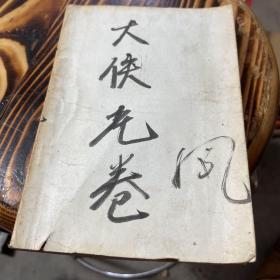 大侠龙卷
风